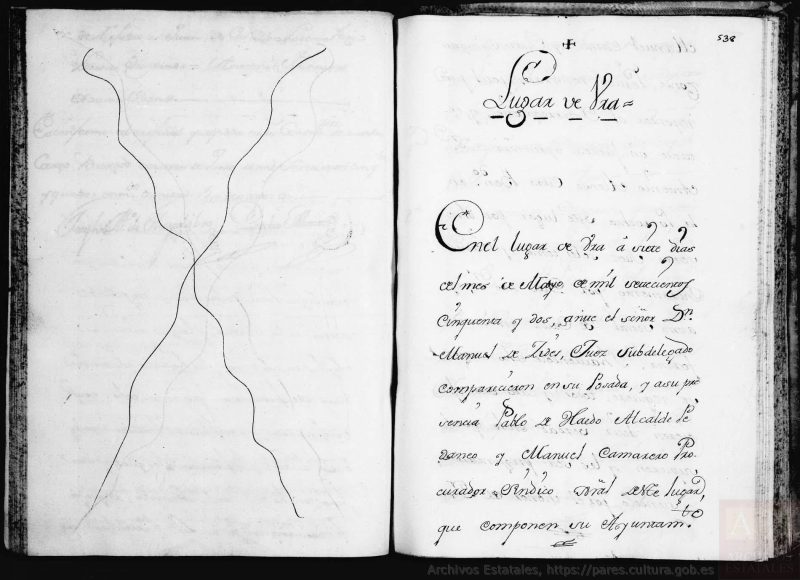 538
Lugar de Vra=
Enel lugar de Vra â siete dias
del mes de Mayo de mil setecientos
Cinquenta y dos, antte el señor Dn.
Manuel de Juez Subdelegado
Comparecieron en su Posada, y a su pre
sencia Pablo de Haedo Alcalde Pe
daneo y Manuel Camarero Pro
curador Sindico Gral deste lugar,
que componen su Ayuntam.to
Archivos Estatales, https://pares.cultura.gob.es